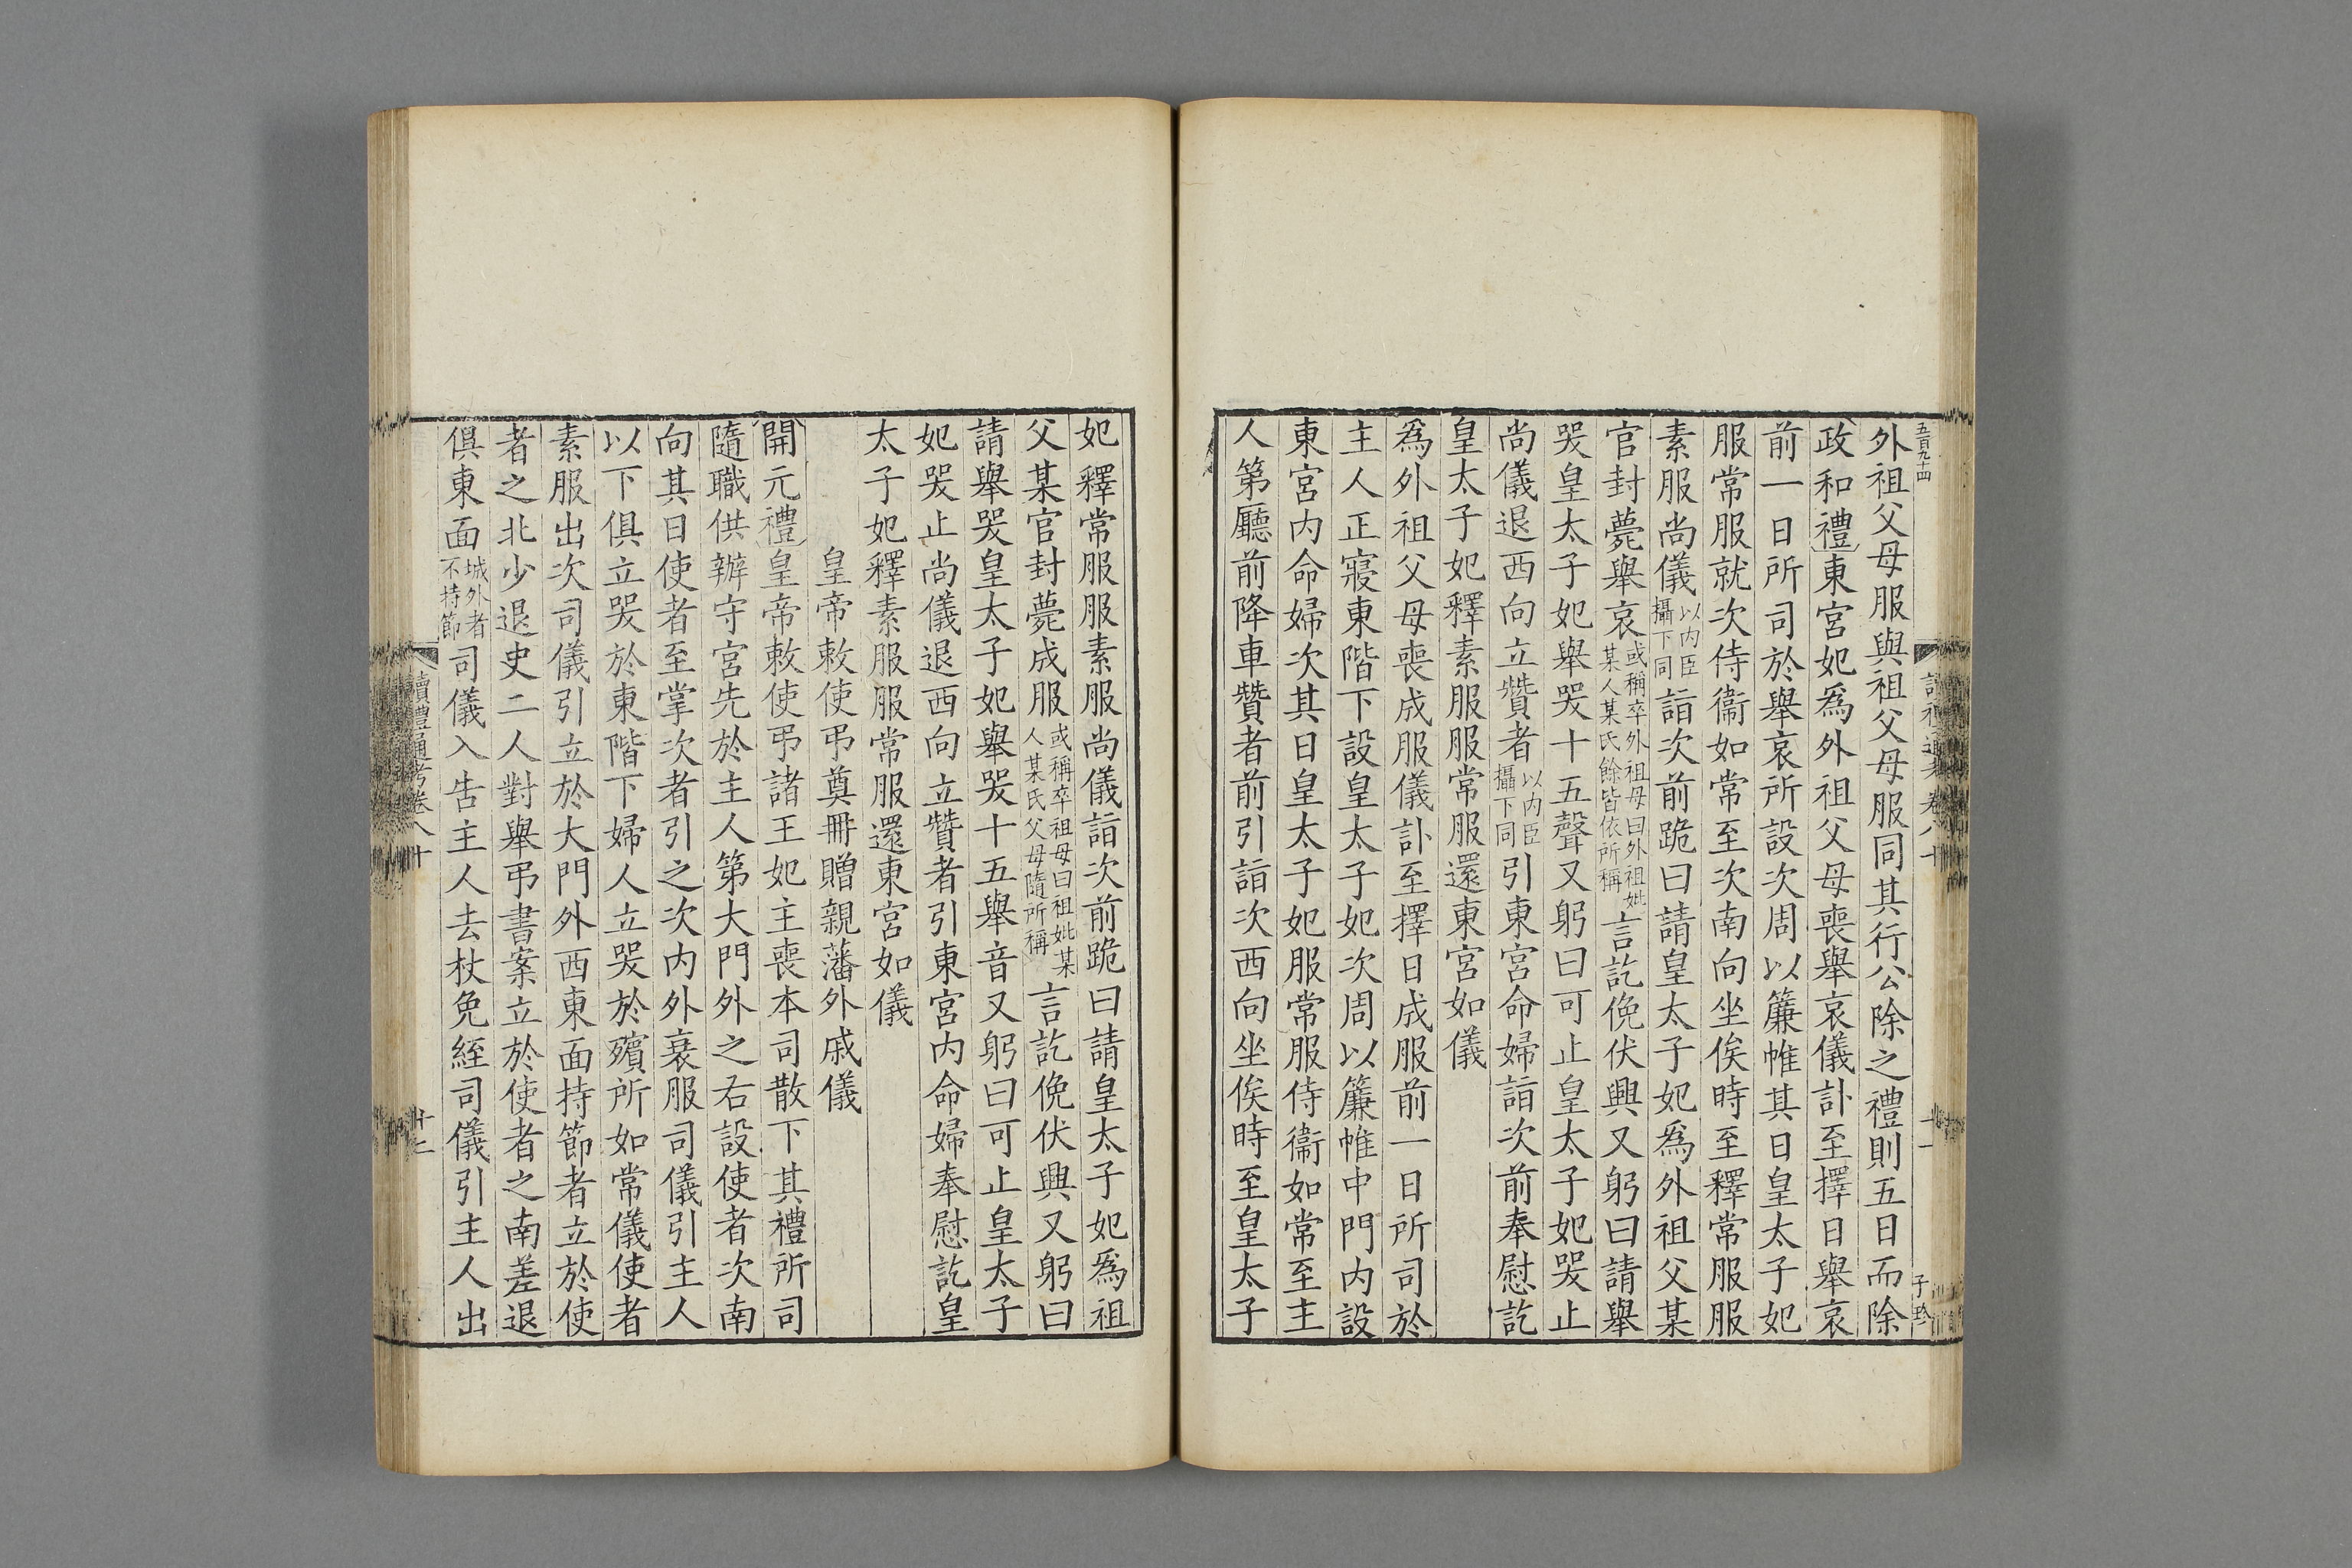 五百九十四
外祖父母服與祖父母服同其行公除之禮則五日而除
政和禮東宮妃爲外祖父母喪舉哀儀訃至擇日舉哀
前一日所司於舉哀所設次周以簾帷其日皇太子妃
服常服就次侍衞如常至次南向坐俟時至釋常服服
素服尚儀以内臣攝下同詣次前跪曰請皇太子妃爲外祖父某
官封薨舉哀或稱卒外祖母曰外祖妣某人某氏餘皆依所稱言訖俛伏興又躬曰請舉
哭皇太子妃舉哭十五聲又躬曰可止皇太子妃哭止
尚儀退西向立贊者以内臣攝下同引東宮命婦詣次前奉慰訖
皇太子妃釋素服服常服還東宮如儀
爲外祖父母喪成服儀訃至擇日成服前一日所司於
主人正寢東階下設皇太子妃次周以簾帷中門内設
東宮内命婦次其日皇太子妃服常服侍衞如常至主
人第廳前降車贊者前引詣次西向坐俟時至皇太子
子珍
妃釋常服服素服尚儀詣次前跪曰請皇太子妃爲祖
父某官封薨成服或稱卒祖母曰祖妣某人某氏父母隨所稱言訖俛伏興又躬曰
請舉哭皇太子妃舉哭十五舉音又躬曰可止皇太子
妃哭止尚儀退西向立贊者引東宮内命婦奉慰訖皇
太子妃釋素服服常服還東宮如儀
皇帝敕使弔奠冊贈親藩外戚儀
開元禮皇帝敕使弔諸王妃主喪本司散下其禮所司
隨職供辦守宮先於主人第大門外之右設使者次南
向其日使者至掌次者引之次内外衰服司儀引主人
以下俱立哭於東階下婦人立哭於殯所如常儀使者
素服出次司儀引立於大門外西東面持節者立於使
者之北少退史二人對舉弔書案立於使者之南差退
俱東面城外者不持節司儀入告主人去杖免絰司儀引主人出
讀禮通考卷八十
十二